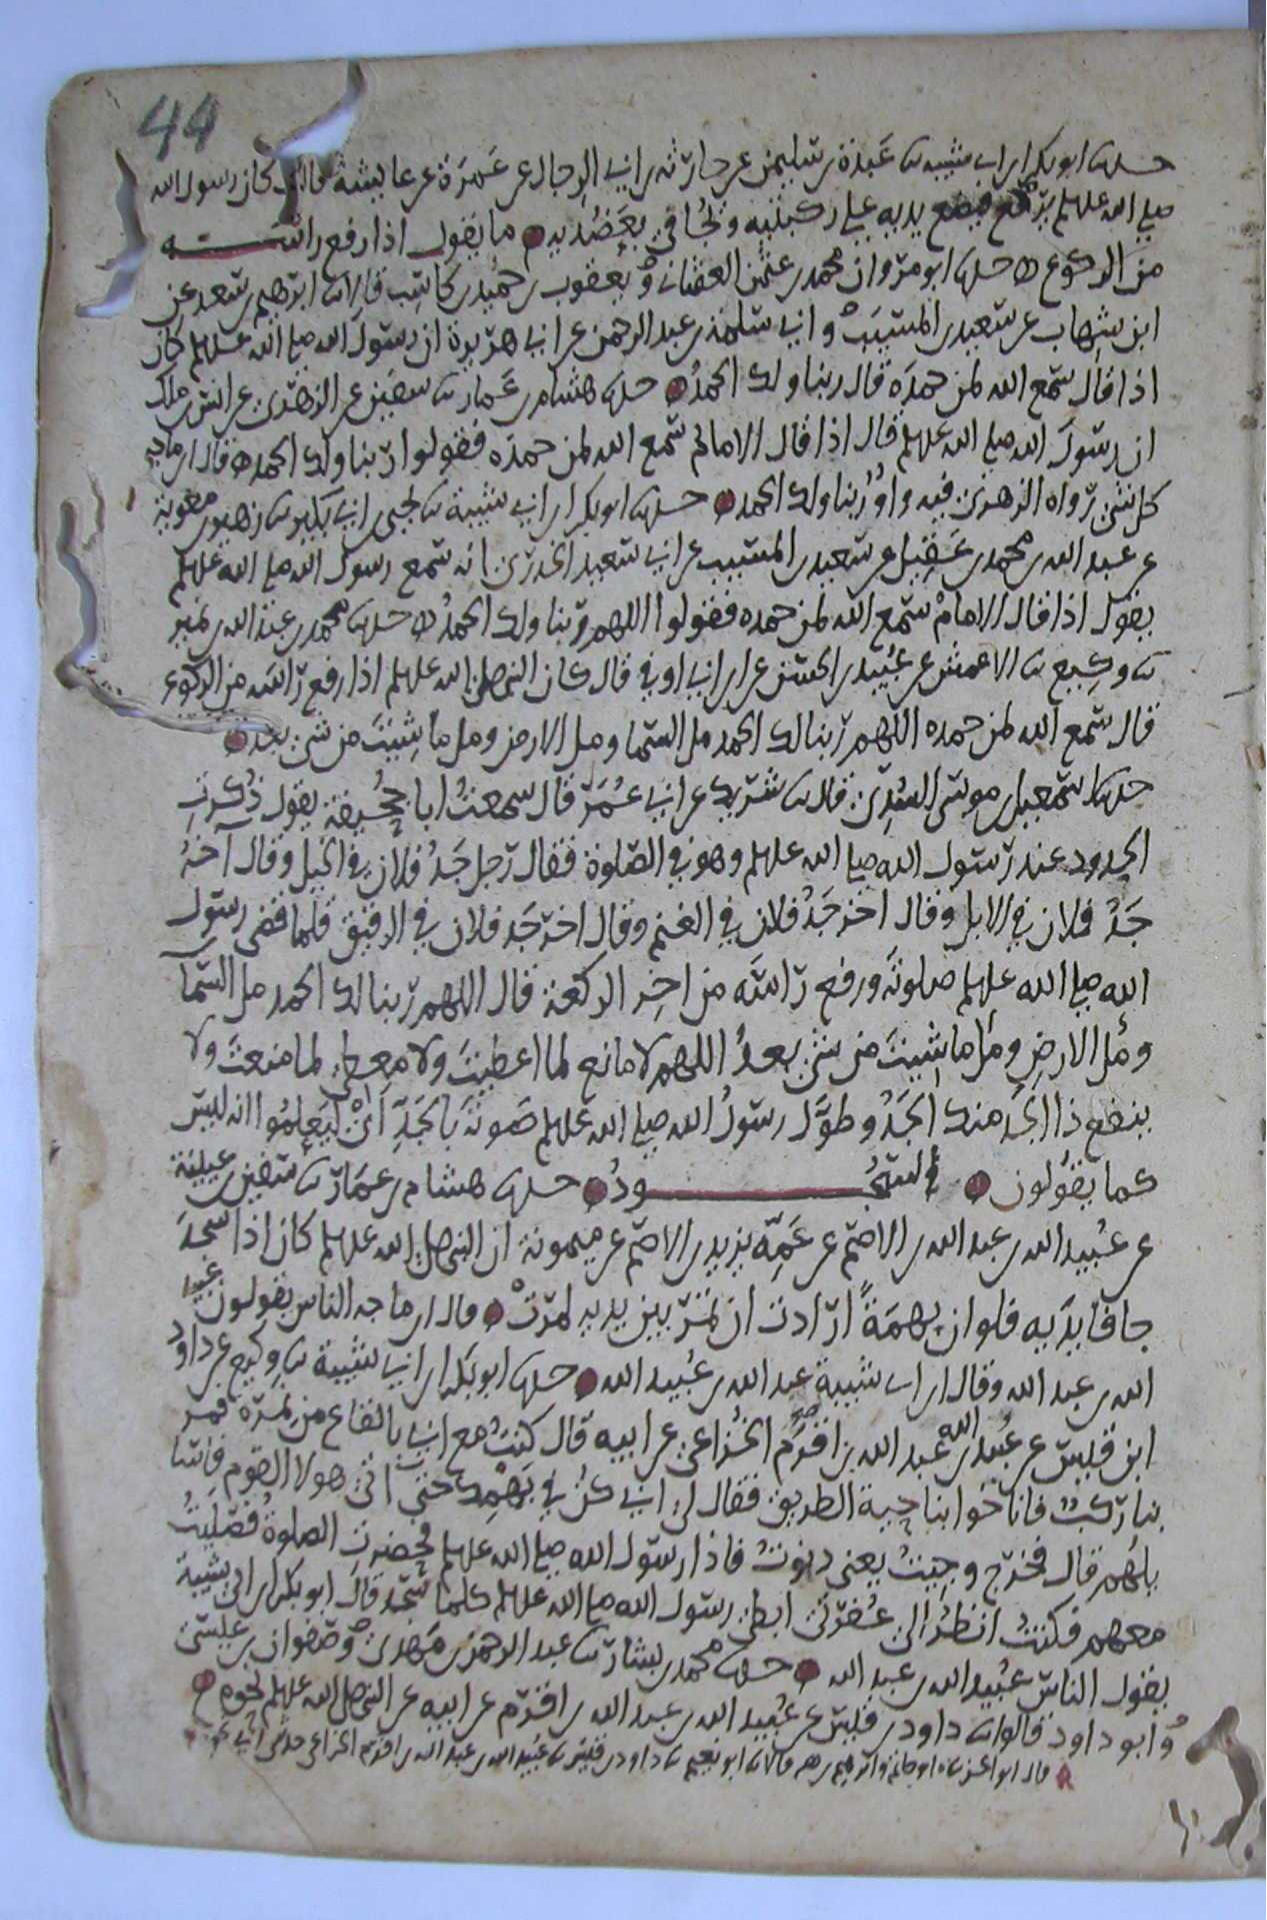 44
حدثنا ابو بكر ابن ابي شيبه نا عبدة بن سليمن عن حارثة بن ابي الرجال عن عمرة عن عايشة قالت كان رسول الله
صلى الله عليه وسلم يركع فيضع يديه على ركبتيه ويجافي بعضديه ما يقول اذا رفع راسه
من الركوع حدثنا ابو مروان محمد بن عثمن العثماني ويعقوب بن حميد بن كاسب قالا نا ابرهيم بن سعد عن
ابن شهاب عن سعيد بن المسيب وابي سلمة بن عبد الرحمن عن ابي هريرة ان رسول الله صلى الله عليه وسلم كان
اذا قال سمع الله لمن حمده قال ربنا ولك الحمد حدثنا هشام بن عمار نا سفين عن الزهري عن انس بن ملك
ان رسول الله صلى الله عليه وسلم قال اذا قال الامام سمع الله لمن حمده فقولوا ربنا ولك الحمد قال ابن ماجه
كل شي رواه الزهري فيه واو ربنا ولك الحمد حدثنا ابو بكر ابن ابي شيبة نا يحيى بن ابي بكير نا زهير بن معوية
عن عبد الله بن محمد بن عقيل عن سعيد بن المسيب عن ابي سعيد الخدري انه سمع رسول الله صلى الله عليه وسلم
يقول اذا قال الامام سمع الله لمن حمده فقولوا اللهم ربنا ولك الحمد حدثنا محمد بن عبد الله بن نمير
نا وكيع نا الاعمش عن عبيد بن الحسن عن ابن ابي اوفى قال كان النبي صلى الله عليه وسلم اذا رفع راسه من الركوع
قال سمع الله لمن حمده اللهم ربنا لك الحمد مل السما ومل الارض ومل ما شيت من شي بعد
حدثنا اسمعيل بن موسى السدي قال نا شريك عن ابي عمر قال سمعت ابا جحيفة يقول ذكرت
الجدود عند رسول الله صلى الله عليه وسلم وهو في الصلوة فقال رجل جد فلان في الخيل وقال آخر
جد فلان في الابل وقال اخر جد فلان في الغنم وقال اخر جد فلان في الرقيق فلما قضى رسول
الله صلى الله عليه وسلم صلوته ورفع راسه من اخر الركعة قال اللهم ربنا لك الحمد مل السما
ومل الارض ومل ما شيت من شي بعد اللهم لا مانع لما اعطيت ولا معطي لما منعت ولا
ينفع ذا الجد منك الجد وطول رسول الله صلى الله عليه وسلم صوته بالجد اي ليعلموا انه ليس
كما يقولون في السجود حدثنا هشام بن عمار نا سفين بن عيينة
عن عبيد الله بن عبد الله بن الاصم عن عمه يزيد بن الاصم عن ميمونة ان النبي صلى الله عليه وسلم كان اذا سجد
جافا يديه فلو ان بهمة ارادت ان تمر بين يديه لمرت قال ابن ماجه الناس يقولون عبيد
الله بن عبد الله وقال ابن ابي شيبة عبد الله بن عبيد الله حدثنا ابو بكر ابن ابي شيبة نا وكيع عن داود
ابن قيس عن عبيد الله بن عبد الله بن اقرم الخزاعي عن ابيه قال كنت مع ابي بالقاع من نمرة فمر
بنا ركب فاناخوا بناحية الطريق فقال لي ابي كن في بهمك حتى اتي هولا القوم فاسا
يلهم قال فخرج وجيت يعني دنوت فاذا رسول الله صلى الله عليه وسلم فحضرت الصلوة فصليت
معهم فكنت انظر الى عفرتي ابطي رسول الله صلى الله عليه وسلم كلما سجد قال ابو بكر ابن ابي شيبة
يقول الناس عبيد الله بن عبد الله حدثنا محمد بن بشار نا عبد الرحمن بن مهدي وصفوان بن عيسى
وابو داود قالوا نا داود بن قيس عن عبيد الله بن عبد الله بن اقرم عن ابيه عن النبي صلى الله عليه وسلم نحوه
قال ابو الحسن نا ابو حاتم وابرهيم بن نصر قالا نا ابو نعيم نا داود بن قيس نا عبيد الله بن عبد الله بن اقرم الخزاعي حدثني ابي نحوه